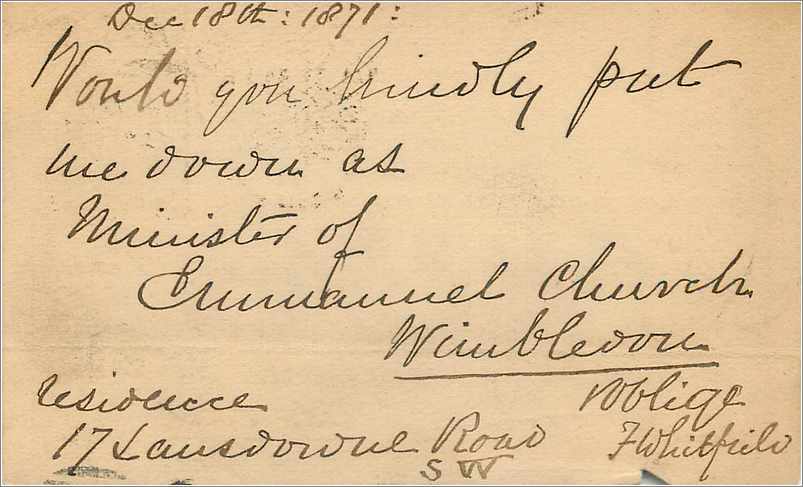 Dec 18th: 1871:
Would you kindly put
me down as
Minister of
Emmanuel Church
Wimbledon
residence
& oblige
17 Lansdowne Road
S W
F Whitfield